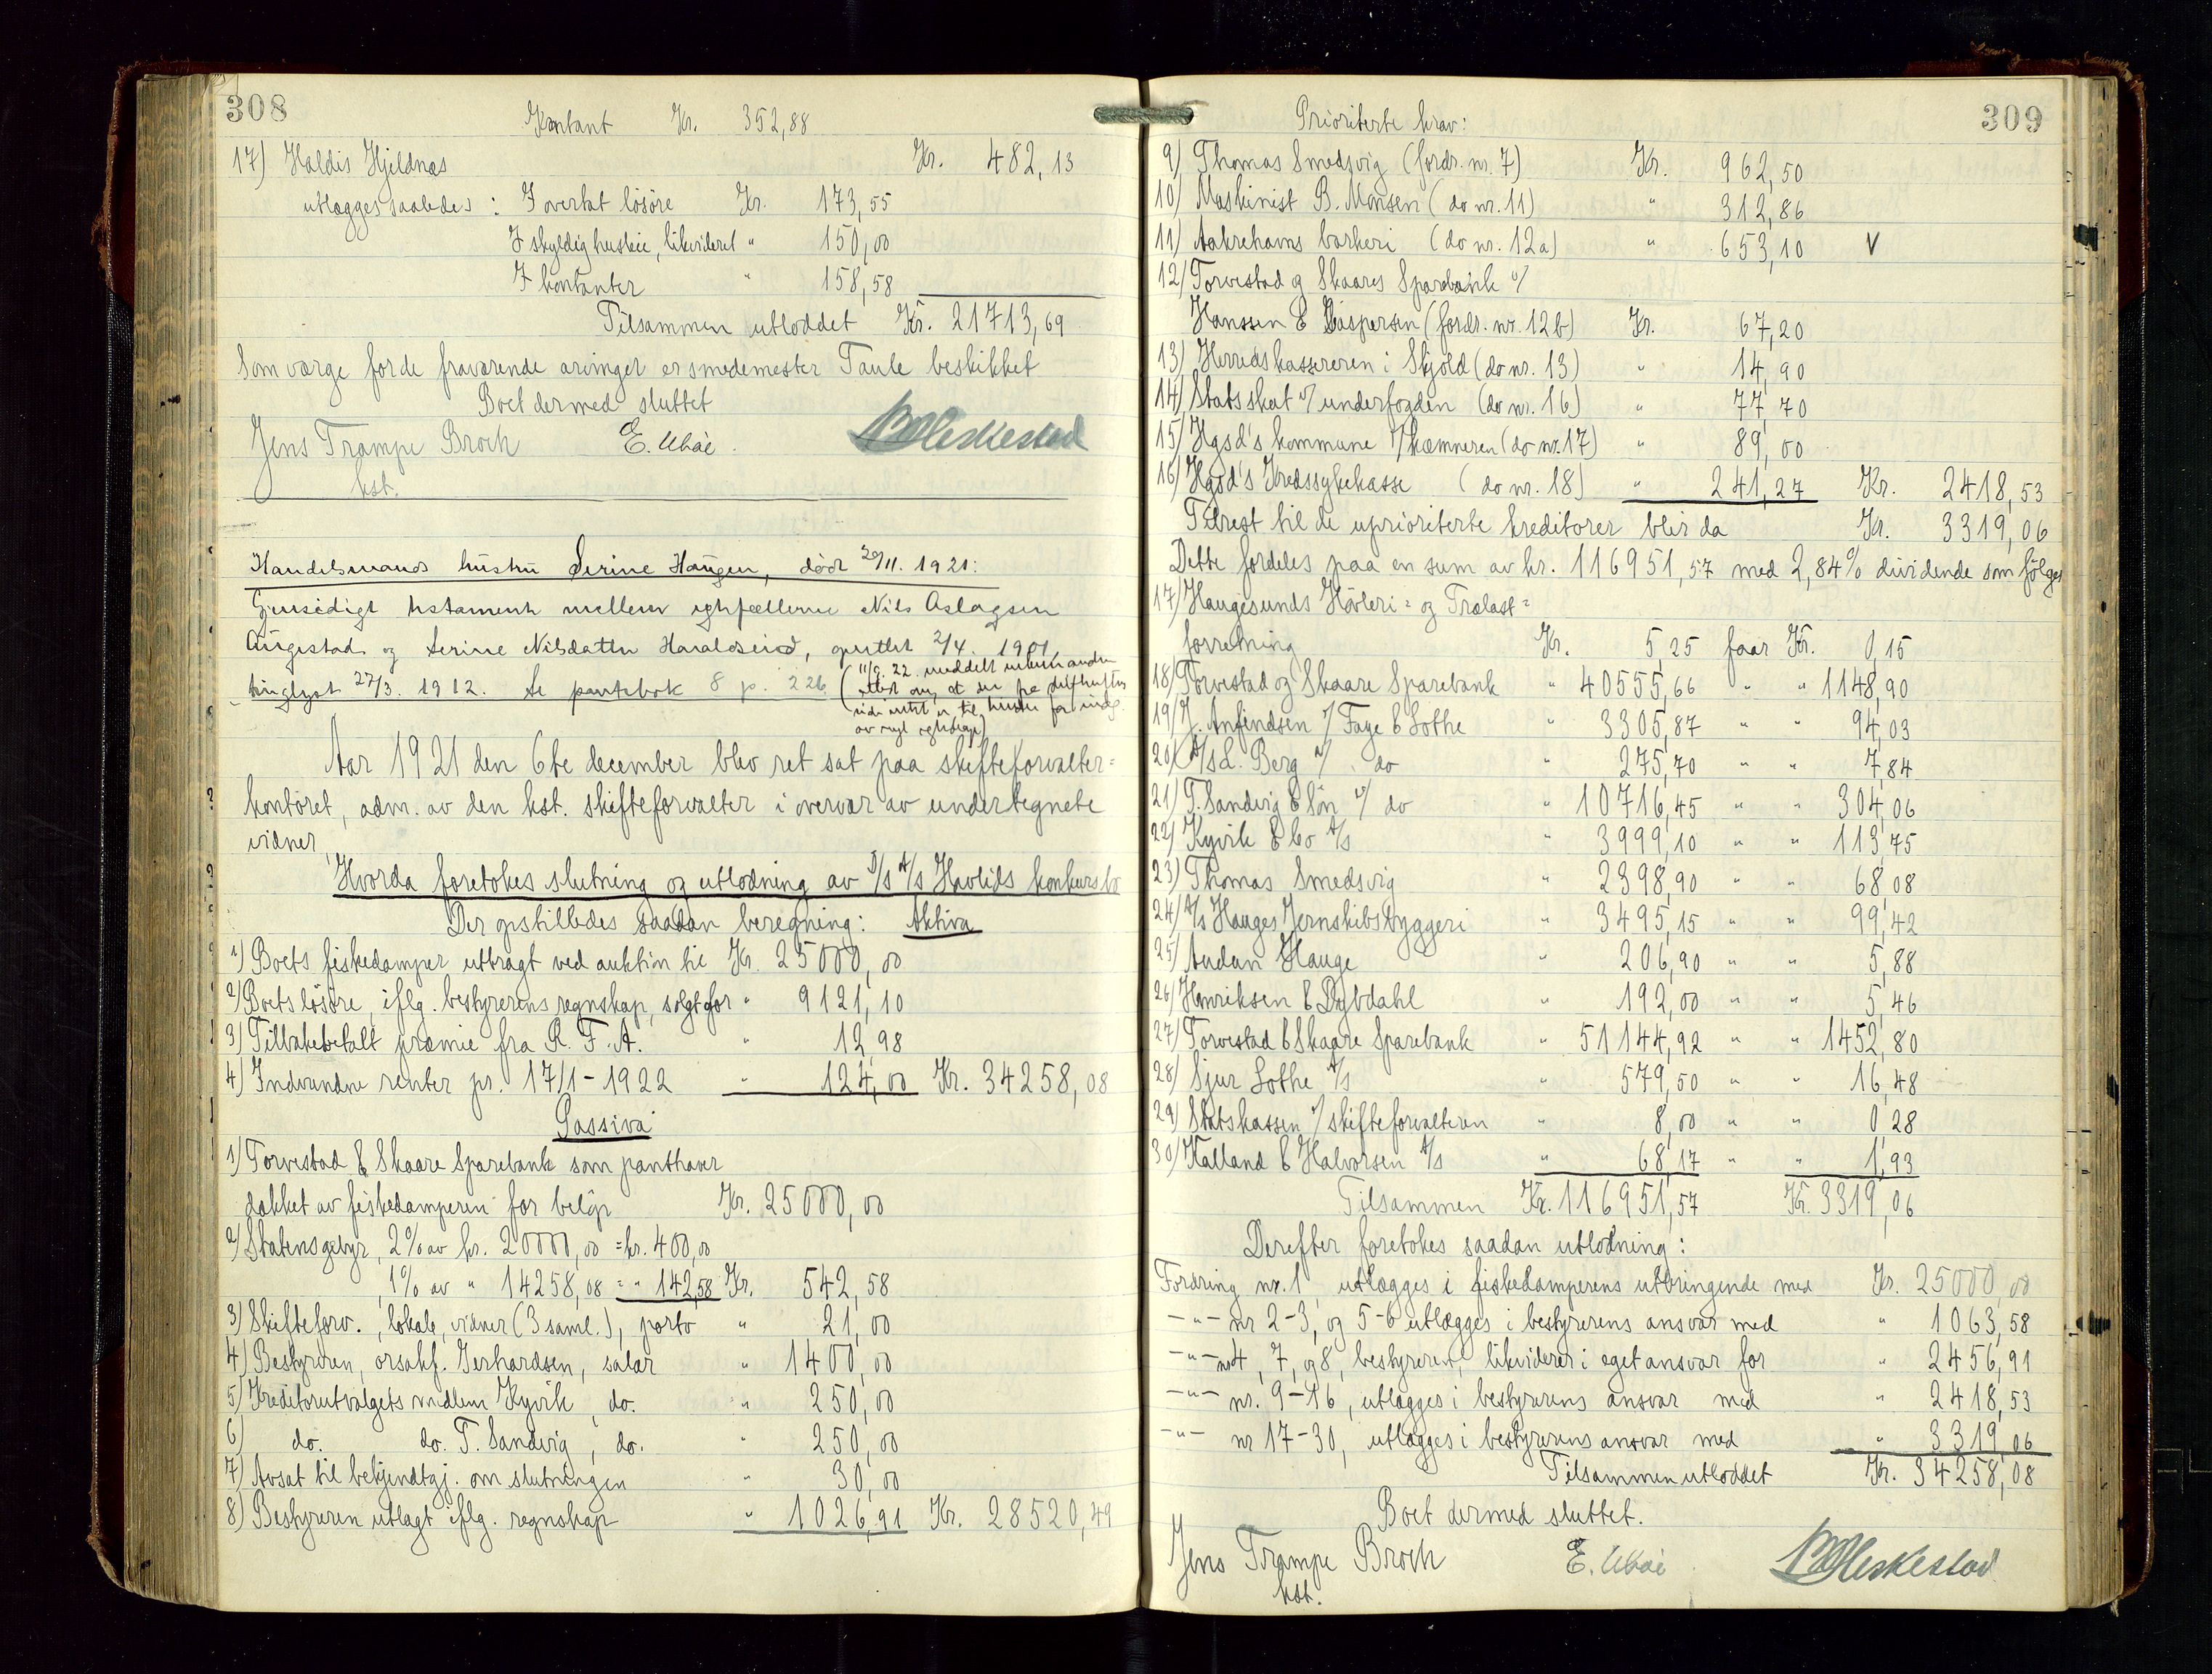 308
Kontant Kr. 352,88
17) Haldis Hjeldnæs Kr. 482,13
utlægges saaledes: I overtat lösöre Kr. 173,55
I skyldig husleie, likvideret " 150,00
I kontanter " 158,58
Tilsammen utloddet Kr. 21713,69
Som værge for de fraværende arvinger er smedemester Taule beskikket
Boet dermed sluttet
Jens Trampe Broch E. Ubøe. B Heskestad
kst.
Handelsmands hustru Serine Haugen, död 20/11. 1921:
Gjensidigt testament mellem egtefællerne Nils Aslagsen
Augestad og Serine Nilsdatter Haraldseid, oprettet 2/4. 1901,
tinglyst 27/3. 1912. Se pantebok 8 p. 226
Aar 1921 den 6te december blev ret sat paa skifteforvalter=
kontoret, adm. av den kst. skifteforvalter i overvær av undertegnete
vidner,
Hvorda foretokes slutning og utlodning av D/S A/S Havlids konkursbo
Der opstilledes saadan beregning: Aktiva
1) Boets fiskedamper utbragt ved auktion til Kr. 25000,00
2) Boets lösöre, iflg. bestyrerens regnskap, solgt for " 9121,10
3) Tilbakebetalt præmie fra R. F. A. " 12,98
4) Indvundne renter pr. 17/1-1922 " 124,00 Kr. 34258,08
Passiva
1) Torvestad & Skaare Sparebank som panthaver
dækket av fiskedamperen for belöp Kr. 25000,00
2) Statens gebyr, 2% av kr. 20000,00 = kr. 400,00
1% av " 14258,08 = " 142,58 Kr. 542,58
3) Skifteforv., lokale, vidner (3 saml.), porto " 21,00
4) Bestyreren, o.r.sakf. Gerhardsen, salær " 1400,00
5) Kreditorutvalgets medlem Kyvik, do. " 250,00
6) do. do. T. Sandvig, do. " 250,00
7) Avsat til bekjendtgj. om slutningen " 30,00
8) Bestyreren utlagt iflg. regnskap " 1026,91 Kr. 28520,49
309
Prioriterte krav:
9) Thomas Smedsvig (fordr. nr. 7) Kr. 962,50
10) Maskinist B. Monsen (do nr. 11) " 312,86
11) Aakrehavns barkeri (do nr. 12a) " 653,10 V
12) Torvestad og Skaares Sparebank v/
Hanssen & Kaspersen (fordr. nr. 12b) Kr. 67,20
13) Herredskassereren i Skjold (do nr. 13) " 14,90
14) Statsskat v/ underfogden (do nr. 16) " 77,70
15) Hgsd's kommune v/ kæmneren (do nr. 17) " 89,00
16) Hgsd's Kredssykekasse (do nr. 18) " 241,27 Kr. 2418,53
Tilrest til de uprioriterte kreditorer blir da Kr. 3319,06
Dette fordeles paa en sum av kr. 116951,57 med 2,84% dividende som fölger
17) Haugesunds Hövleri= og Trælast=
forretning Kr. 5,25 faar Kr. 0,15
18) Torvestad og Skaare Sparebank " 40555,66 " " 1148,90
19) J. Anfindsen v/ Faye & Lothe " 3305,87 " " 94,03
20) A/S L. Berg v/ do " 275,70 " " 7,84
21) T. Sandvig & Sön v/ do " 10716,45 " " 304,06
22) Kyvik & Co A/S " 3999,10 " " 113,75
23) Thomas Smedsvig " 2398,90 " " 68,08
24) A/S Hauges Jernskibsbyggeri " 3495,15 " " 99,42
25) Audun Hauge " 206,90 " " 5,88
26) Henriksen & Dybdahl " 192,00 " " 5,46
27) Torvestad & Skaare Sparebank " 51144,92 " " 1452,80
28) Sjur Lothe A/S " 579,50 " " 16,48
29) Statskassen v/ skifteforvalteren " 8,00 " " 0,28
30) Kalland & Halvorsen A/S " 68,17 " " 1,93
Tilsammen Kr. 116951,57 Kr. 3319,06
Derefter foretokes saadan utlodning:
Fordring nr. 1, utlægges i fiskedamperens utbringende med Kr. 25000,00
-"- nr 2-3, og 5-6 utlægges i bestyrerens ansvar med " 1063,58
-"- nr 4, 7, og 8, bestyreren, likviderer i eget ansvar for " 2456,91
-"- nr. 9-16, utlægges i bestyrerens ansvar med " 2418,53
-"- nr 17-30, utlægges i bestyrerens ansvar med " 3319,06
Tilsammen utloddet Kr. 34258,08
Boet dermed sluttet.
Jens Trampe Broch E. Ubøe B Heskestad
kst.